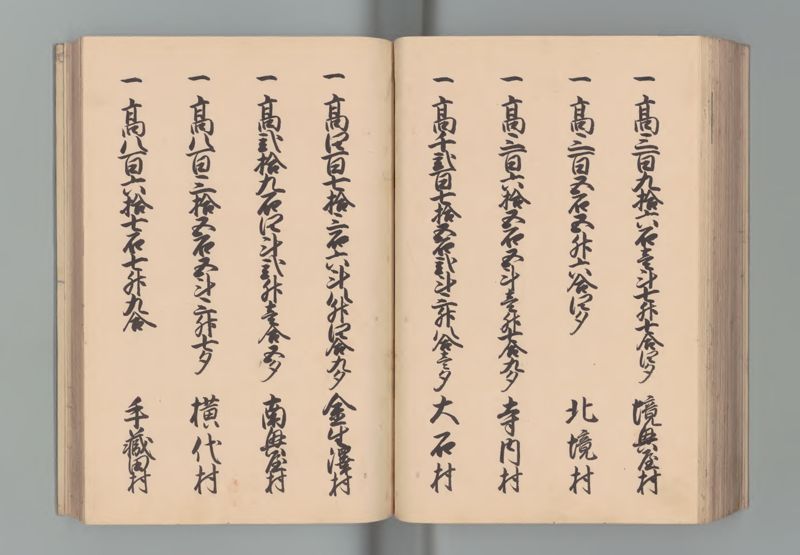 一 高三百九拾六石壱斗七升七合四夕 境興屋村
一 高三百五石五升六合四夕 北境村
一 高三百六拾五石五斗壱升七合九夕 寺内村
一 高千弐百七拾五石弐斗三升八合壱夕 大石村
一 高四百七拾三石六斗八升四合九夕 金生澤村
一 高弐拾九石四斗弐升壱合五夕 南興屋村
一 高八百三拾五石五斗三升七夕 横代村
一 高八百六拾七石七升九合 手蔵田村